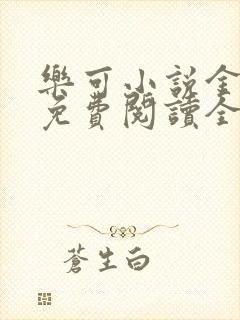 樂可小說全
免費閱讀全
蒼生白